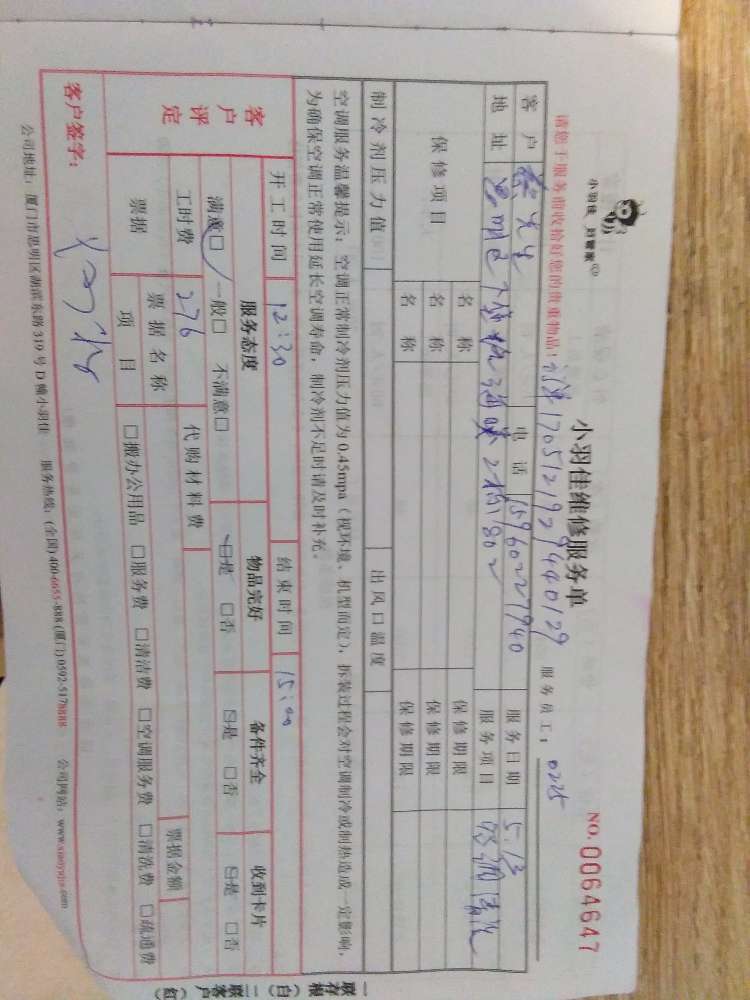 小羽佳 好管家
小羽佳维修服务单
NO. 0064647
请您于服务前收拾好您的贵重物品!
服务员工: 0225
客户 蔡先生 电话 15960227940 服务日期 5.13
地址 思明区 2梯1802 服务项目 空调清洗
保修项目 名称 保修期限
名称 保修期限
名称 保修期限
制冷剂压力值 出风口温度
空调服务温馨提示:空调正常制冷剂压力值为0.45mpa(视环境、机型而定),拆装过程会对空调制冷或制热造成一定影响,
为确保空调正常使用延长空调寿命,制冷剂不足时请及时补充。
客户评定 开工时间 12:30 结束时间 15:00
服务态度 物品完好 备件齐全 收到卡片
满意□ 一般□ 不满意□ □是 □否 □是 □否 □是 □否
工时费 276 代购材料费
票据 票据名称 票据金额
项目 □搬办公用品 □服务费 □清洁费 □空调服务费 □清洗费 □疏通费
客户签字:
公司地址:厦门市思明区湖滨东路319号D幢小羽佳 服务热线:(全国)400-6655-888(厦门)0592-5178888 公司网站:www.xiaoyujia.com
一联存根(白) 二联客户(红)